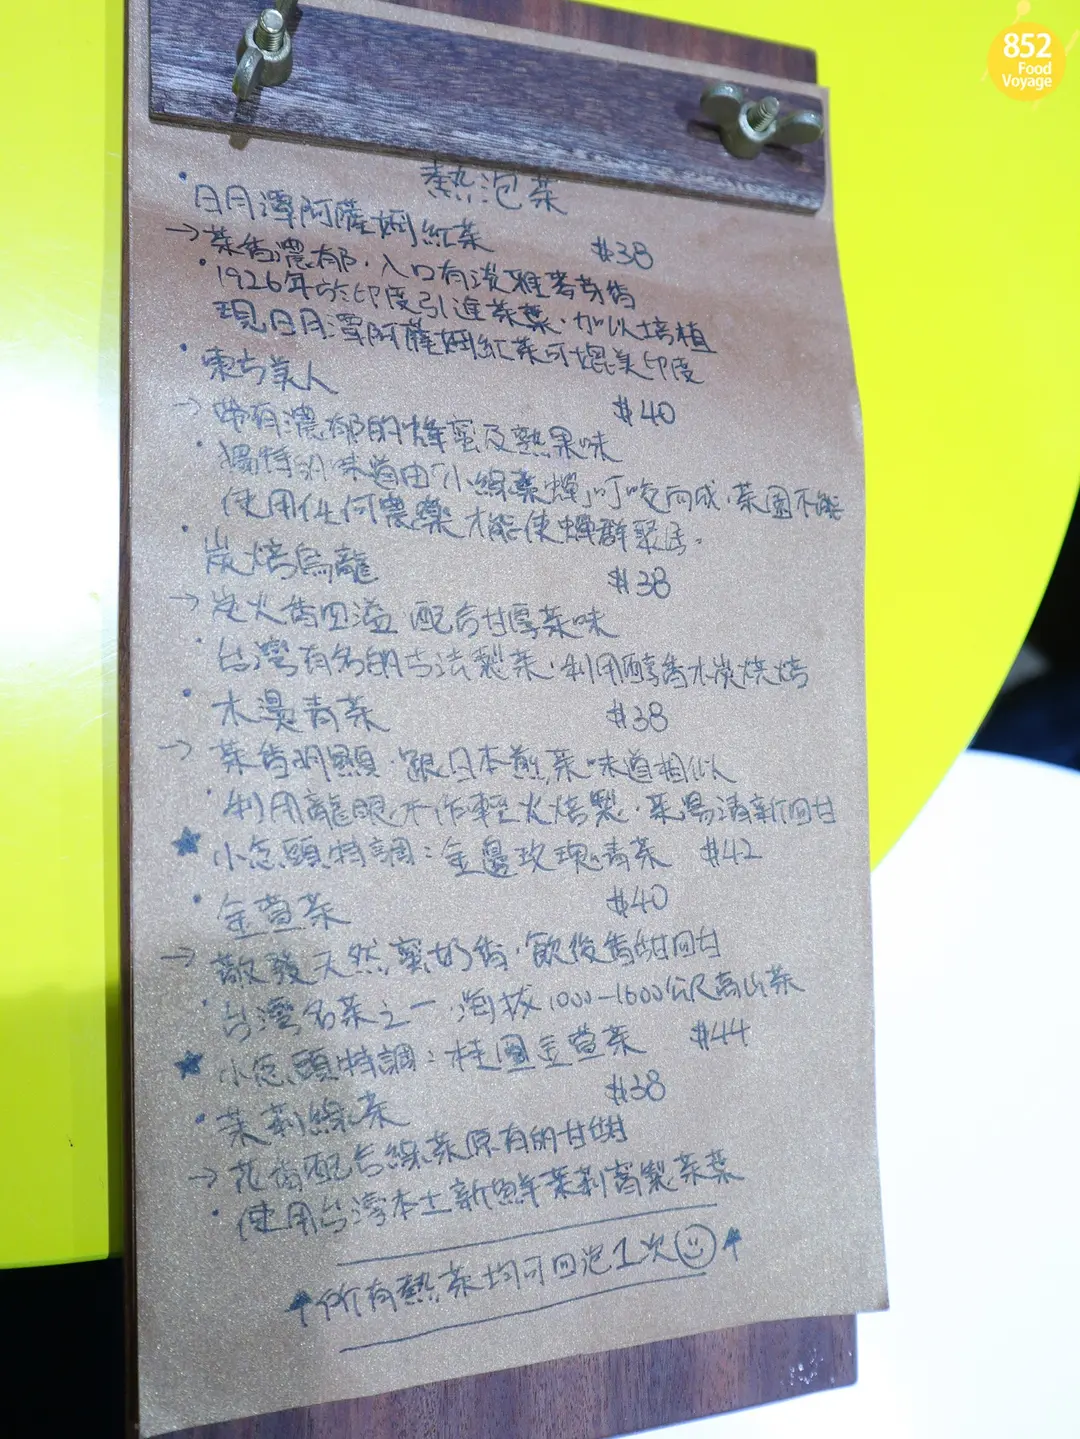 852
Food
Voyage
熱泡茶
·日月潭阿薩姆紅茶 $38
→茶香濃郁，入口有淡雅麥芽香
·1926年於印度引進茶葉，加以培植
現日月潭阿薩姆紅茶可媲美印度
·東方美人 $40
→帶有濃郁的蜂蜜及熟果味
·獨特的味道由「小綠葉蟬」叮咬而成，茶園不能
使用任何農藥才能使蟬群聚居。
·炭焙烏龍 $38
→炭火香四溢 配合甘厚茶味
·台灣有名的古法製茶，利用醇香木炭烘烤
·木燙青茶 $38
→茶香明顯，跟日本煎茶味道相似
·利用龍眼木作輕火焙製，茶湯清新回甘
★小念頭特調：金邊玫瑰青茶 $42
·金萱茶 $40
→散發天然蜜奶香，飲後香甜回甘
·台灣名茶之一，海拔1000-1600公尺高山茶
★小念頭特調：桂圓金萱茶 $44
·茉莉綠茶 $38
→花香配合綠茶原有的甘甜
·使用台灣本土新鮮茉莉窨製茶葉
↑所有熱茶均可回泡1次☺↑